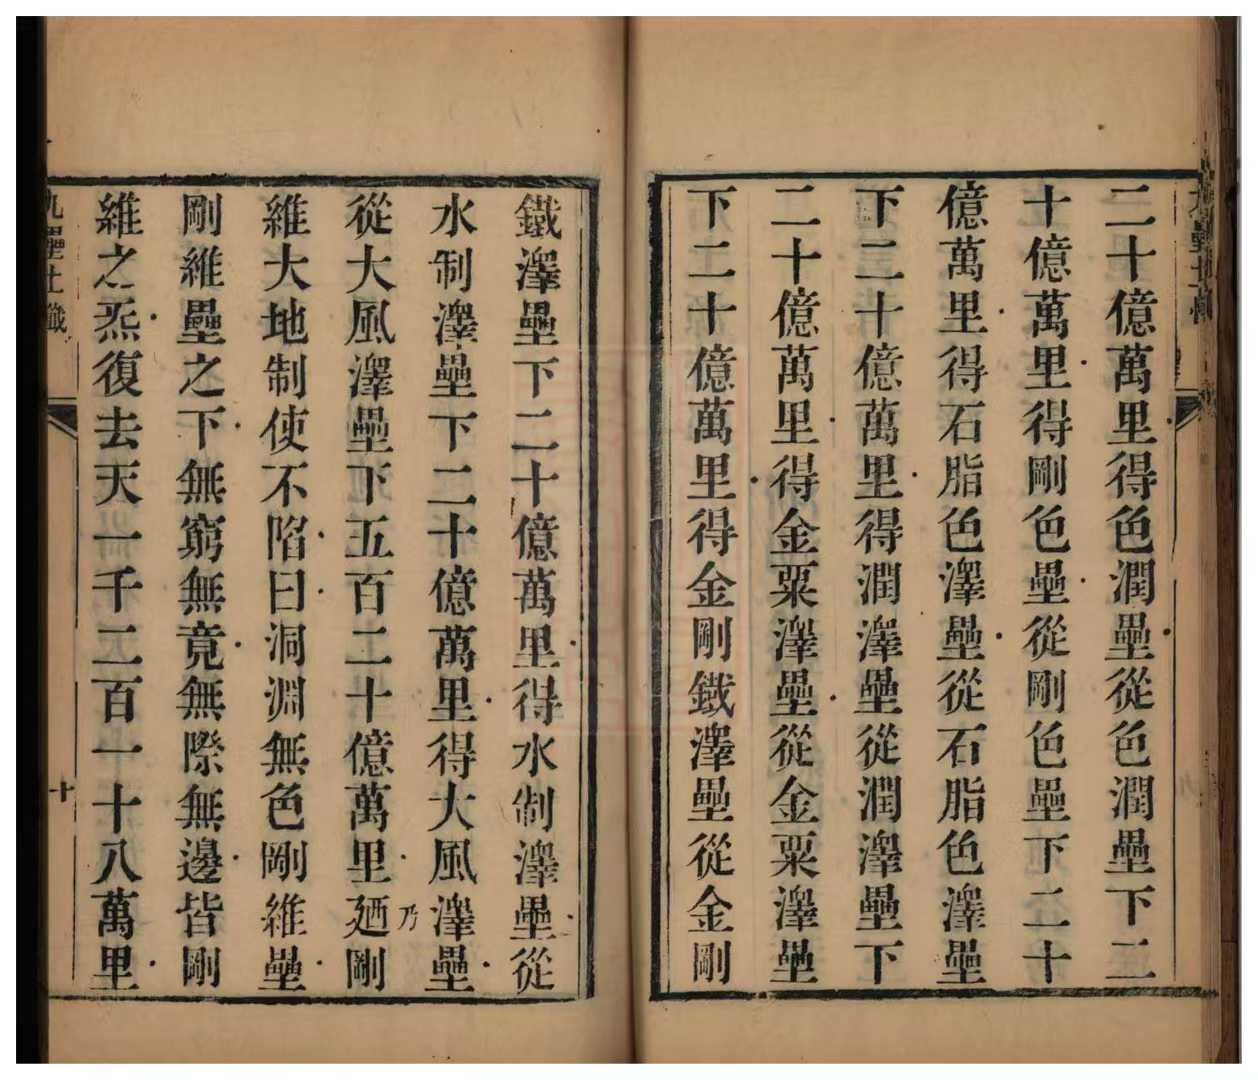 二十億萬里得色潤壘從色潤壘下二
十億萬里得剛色壘從剛色壘下二十
億萬里得石脂色澤壘從石脂色澤壘
下二十億萬里得潤澤壘從潤澤壘下
二十億萬里得金粟澤壘從金粟澤壘
下二十億萬里得金剛鐵澤壘從金剛
鐵澤壘下二十億萬里得水制澤壘從
水制澤壘下二十億萬里得大風澤壘
從大風澤壘下五百二十億萬里廼剛
乃
維大地制使不陷曰洞淵無色剛維壘
剛維壘之下無窮無竟無際無邊皆剛
維之炁復去天一千二百一十八萬里
十